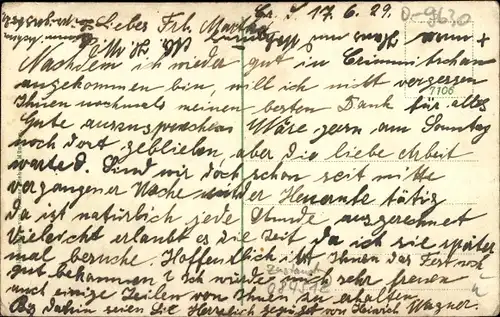 Cr. d 17.6.29.
D-9630
Liebes Frl. Martha
7106
Nachdem ich wieder gut in Crimmitschau
angekommen bin, will ich nicht vergessen
Ihnen nochmals meinen besten Dank für alles
Gute auszusprechen. Wäre gern am Sonntag
noch dort geblieben, aber die liebe Arbeit
warted. Sind wir doch schon seit mitte
vergangener Woche wieder Heuernte tätig
da ist natürlich jede Stunde ausgerechnet
Vieleicht erlaubt es die Zeit da ich sie später
mal besuche. Hoffendlich ist Ihnen das Fest noch
gut bekommen? Ich würde sehr freuen
auch einige Zeilen von Ihnen zu erhalten.
Bis dahin seien Sie Herzlich gegrüßt von Heinrich Wagner.